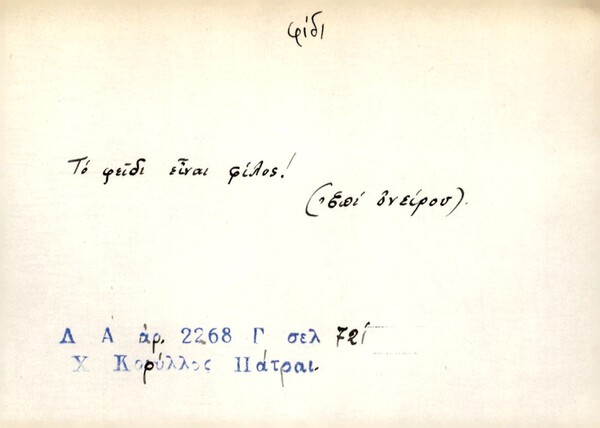 φίδι
Τό φεῖδι εἶναι φίλος!
(Ἐπί ὀνείρου).
Λ Α ἀρ. 2268 Γ σελ 721
Χ Κορύλλος Πάτραι.